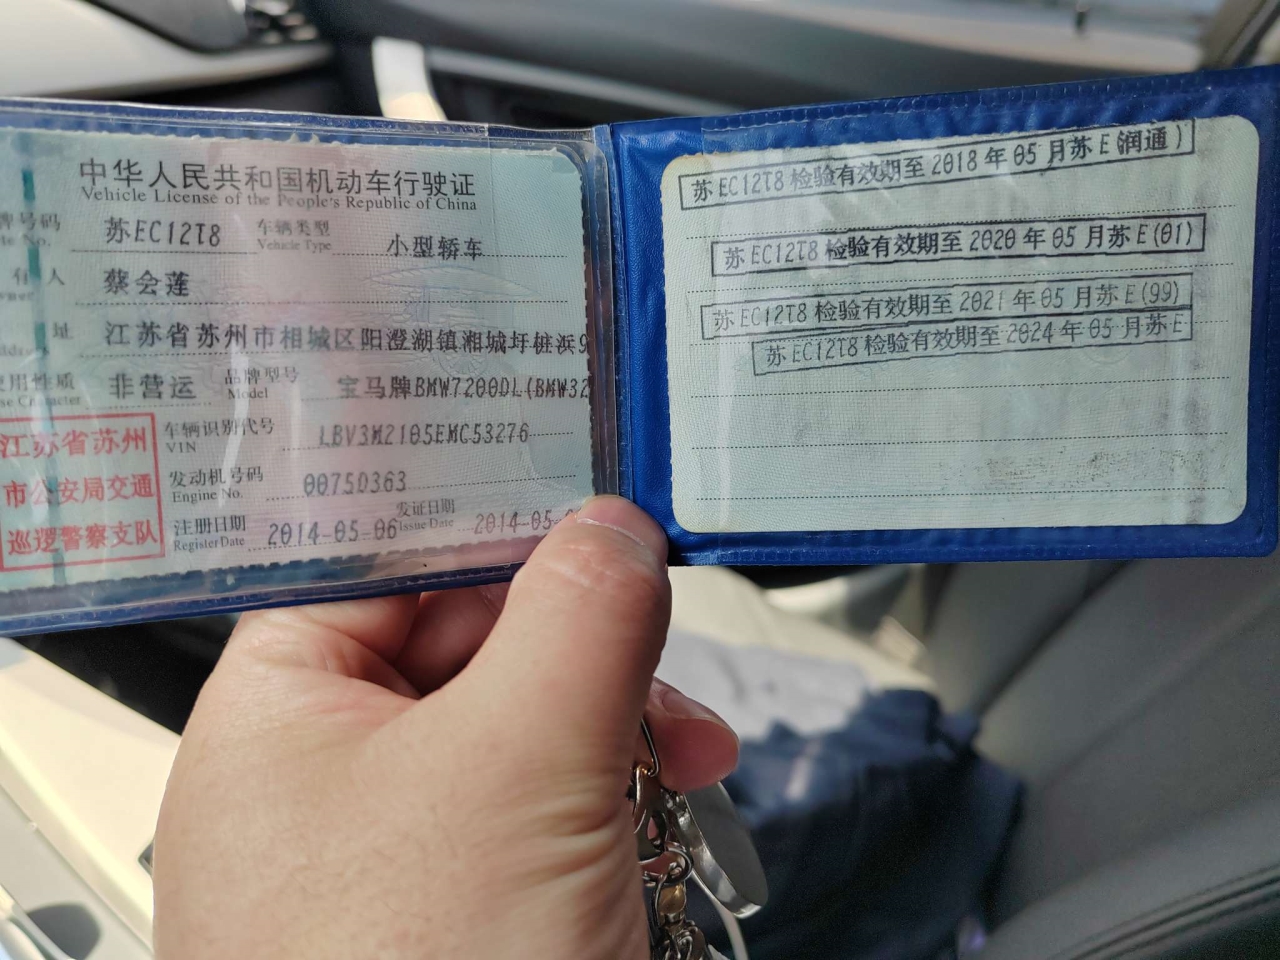 中华人民共和国机动车行驶证
Vehicle License of the People's Republic of China
牌号码 苏EC12T8 车辆类型 小型轿车
No. Vehicle Type
有 人 蔡会莲
址 江苏省苏州市相城区阳澄湖镇湘城圩桩浜9
用性质 非营运 品牌型号 宝马牌BMW7200DL(BMW32
Character Model
车辆识别代号 LBV3M2105EMC53276
VIN
发动机号码 00750363
Engine No.
注册日期 2014-05-06 发证日期 2014-05-0
Register Date Issue Date
江苏省苏州
市公安局交通
巡逻警察支队
苏EC12T8检验有效期至2018年05月苏E(润通)
苏EC12T8检验有效期至2020年05月苏E(01)
苏EC12T8检验有效期至2021年05月苏E(99)
苏EC12T8检验有效期至2024年05月苏E